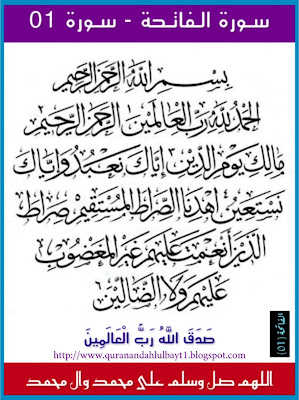 سورة الفاتحة - سورة 01
بِسْمِ اللهِ الرَّحْمٰنِ الرَّحِيمِ
الحَمْدُ لِلهِ رَبِّ العَالَمِينَ الرَّحْمٰنِ الرَّحِيمِ
مَالِكِ يَوْمِ الدِّينِ إِيَّاكَ نَعْبُدُ وَإِيَّاكَ
نَسْتَعِينُ اهْدِنَا الصِّرَاطَ الْمُسْتَقِيمَ صِرَاطَ
الَّذِينَ أَنْعَمْتَ عَلَيْهِمْ غَيْرِ الْمَغْضُوبِ
عَلَيْهِمْ وَلَا الضَّالِّينَ
الفاتحة (01)
صَدَقَ اللَّهُ رَبُّ الْعَالَمِينَ
http://www.quranandahlulbayt1.blogspot.com
اللهم صل وسلم على محمد وال محمد